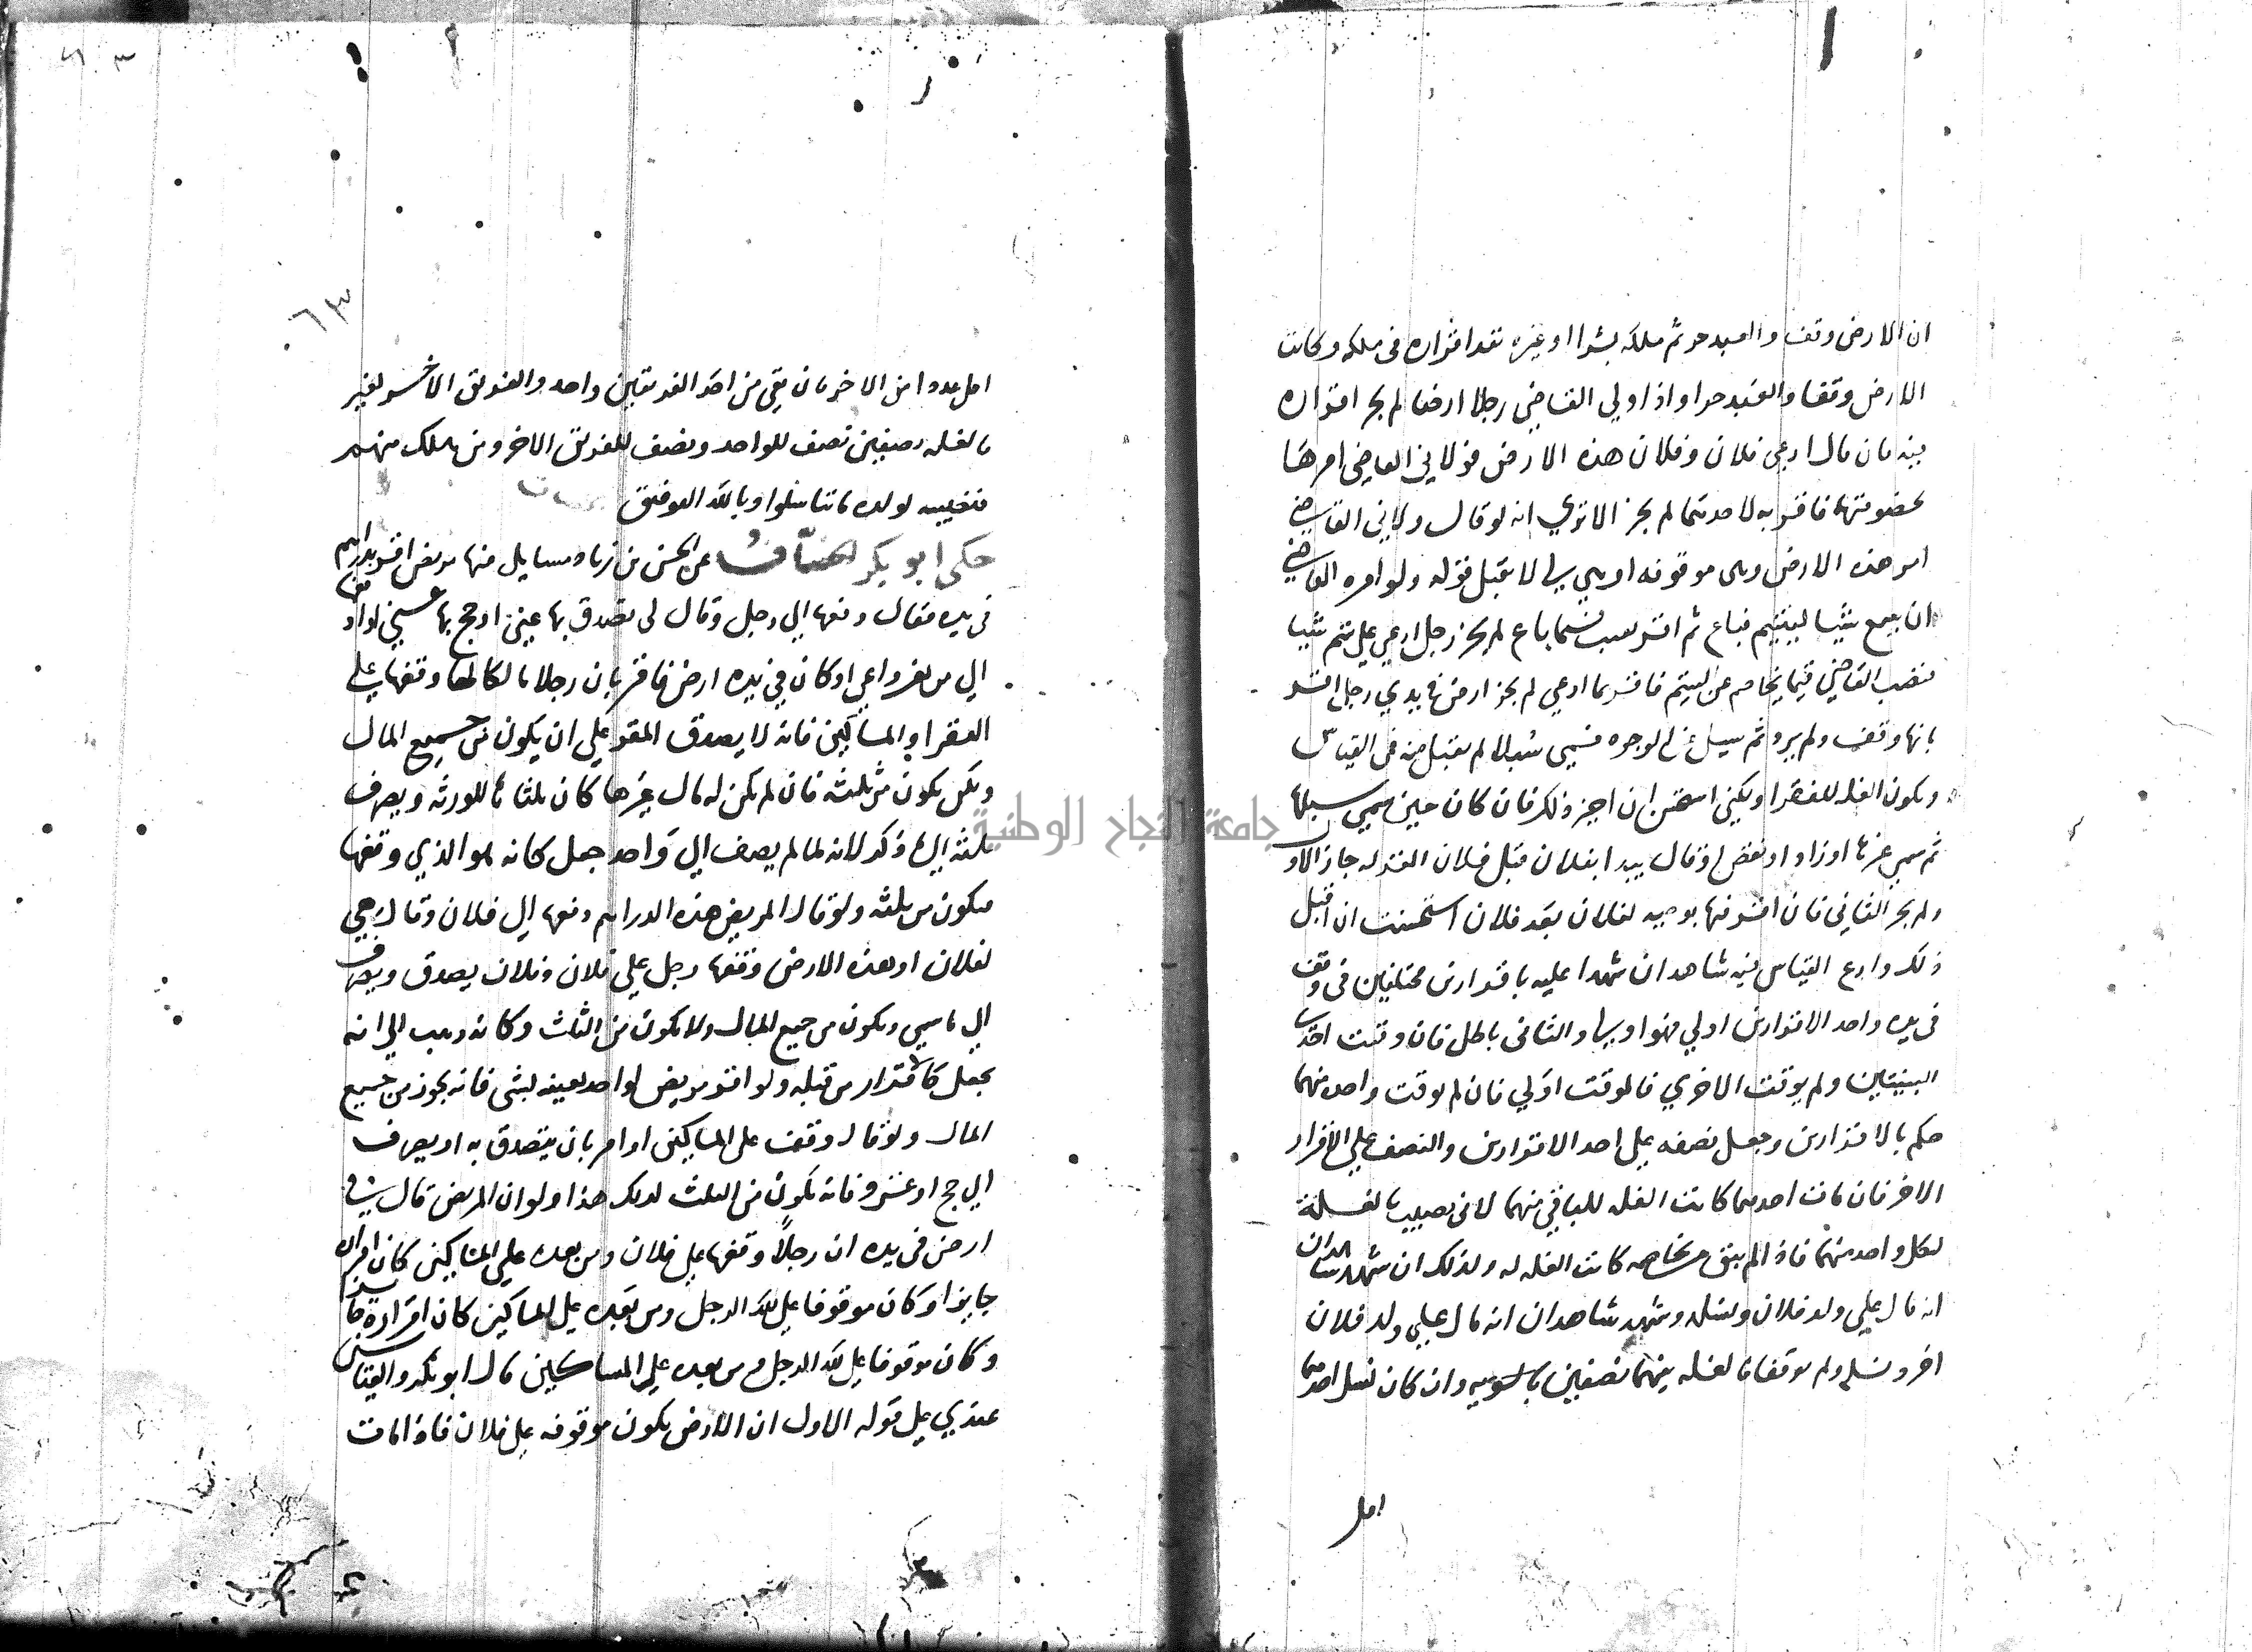 ان الارض وقف والعبد حر ثم ملكه بشرا او غيره نفد اقراره فى ملكه وكانت
الارض وقفا والعبد حرا واذا ولي القاضي رجلا ارضا لم يجز اقراره
فيه فان قال ادعى فلان وفلان هذه الارض فولاني القاضي امرها
بخصومتهما فاقر به لاحدهما لم يجز الا تري انه لو قال ولاني القاضي
امر هذه الارض وهى موقوفه او هي لي لا يقبل قوله ولو امره القاضي
ان يبيع شيا ليتيم فباع ثم اقر بعيب فيما باع لم يجز رجل ادعي علي يتيم شيا
فنصب القاضي قيما يخاصم عن اليتيم فاقر بما ادعي لم يجز ارض في يدي رجل اقر
بانها وقف ولم يزد ثم سيل عن الوجوه فسمى سبلا لم يقبل منه فى القياس
ويكون الغله للفقرا ولكني استحسن ان اجيز ذلك فان كان حين سمي سبلها
ثم سمي غيرها او زاد او نقص او قال يبدا بفلان قبل فلان القوله جاز الاول
ولم يجز الثاني فان اقر فيها بوصيه لفلان بعد فلان استحسنت ان اقبل
ذلك وادع القياس فيه شاهدان شهدا عليه باقرارين مختلفين فى وقف
فى يده واحد الاقرارين اولي فهو اولي والثانى باطل فان وقتت احدي
البينتين ولم يوقت الاخري فالموقت اولي فان لم يوقت واحده منهما
حكم بالاقرارين وجعل نصفه علي احد الاقرارين والنصف علي الاقرار
الاخر فان مات احدهما كانت الغله للباقي منهما لانى نصيب الغلة
لكل واحد منهما فاذا لم يبق مخاصم كانت الغله له ولذلك ان شهد شاهدان
انه قال علي ولد فلان ونسله وشهد شاهدان انه قال علي ولد فلان
اخر ونسله ولم يوقفا فالغله بينهما نصفين بالسويه وان كان نسل احدهما
اقل
٦٣
اقل عددا من الاخر فان بقي من احد الفريقين واحد والفريق الاخر كثير
فالغله نصفين نصف للواحد ونصف للفريق الاخر ومن هلك منهم
فنصيبه لولده ما تناسلوا وبالله التوفيق
حكى ابو بكر الخصاف عن الحسن بن زياد مسايل منها مريض اقر بدراهم
فى يده فقال دفعها الي رجل وقال لى تصدق بها عني او حج بها عني او ادفعها
الي من يغزوا عني او كان في يده ارض فاقر بان رجلا مالكا لها وقفها علي
الفقرا والمساكين فانه لا يصدق المقر علي ان يكون من جميع المال
ولكن يكون من ثلثه فان لم يكن له مال غيرها كان ثلثاها للورثه ويصرف
ثلثه الي ما ذكر لانه لما لم يضف الي واحد جعل كانه هو الذي وقفها
فيكون من ثلثه ولو قال المريض هذه الدراهم دفعها الي فلان وقال هي
لفلان او هذه الارض وقفها رجل علي فلان وفلان يصدق ويصرف
الي ما سمي ويكون من جميع المال ولا يكون من الثلث وكانه ذهب الي انه
يجعل كاقرار من قبله ولو اقر مريض لواحد بعينه بشى فانه يجوز من جميع
المال ولو قال وقف علي المساكين او امر بان يتصدق به او يصرف
الي حج او غزو فانه يكون من الثلث لذلك هذا ولو ان المريض قال في
ارض فى يده ان رجلاً وقفها علي فلان ومن بعده علي المساكين كان اقراره
جايزا وكان موقوفا علي ذلك الرجل ومن بعده علي المساكين كان اقراره جايز
وكان موقوفا علي ذلك الرجل ومن بعده علي المساكين قال ابو بكر والقياس
عندي علي قوله الاول ان الارض يكون موقوفه علي فلان فاذا مات
جامعة النجاح الوطنية